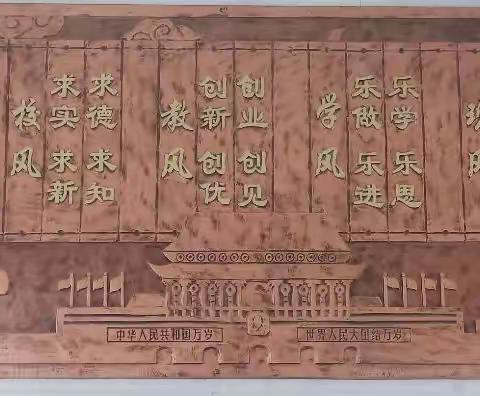 校风
求实 求新
求德 求知
教风
创新 创优
创业 创见
学风
乐做 乐进
乐学 乐思
中华人民共和国万岁
世界人民大团结万岁